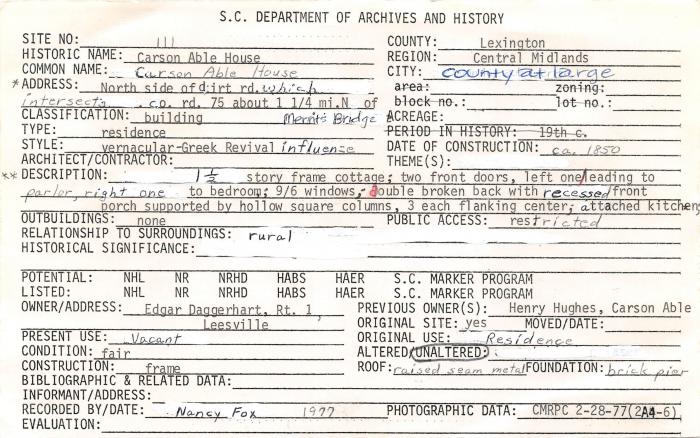 S.C. DEPARTMENT OF ARCHIVES AND HISTORY
SITE NO: 111 COUNTY: Lexington
HISTORIC NAME: Carson Able House REGION: Central Midlands
COMMON NAME: Carson Able House CITY: county at large
*ADDRESS: North side of dirt rd. which area: zoning:
intersects co. rd. 75 about 1 1/4 mi.N of block no.: lot no.:
CLASSIFICATION: building Merritt's Bridge ACREAGE:
TYPE: residence PERIOD IN HISTORY: 19th c.
STYLE: vernacular-Greek Revival influence DATE OF CONSTRUCTION: ca. 1850
ARCHITECT/CONTRACTOR: THEME(S):
**DESCRIPTION: 1½ story frame cottage; two front doors, left one leading to
parlor, right one to bedroom; 9/6 windows; double broken back with recessed front
porch supported by hollow square columns, 3 each flanking center; attached kitchen
OUTBUILDINGS: none PUBLIC ACCESS: restricted
RELATIONSHIP TO SURROUNDINGS: rural
HISTORICAL SIGNIFICANCE:
POTENTIAL: NHL NR NRHD HABS HAER S.C. MARKER PROGRAM
LISTED: NHL NR NRHD HABS HAER S.C. MARKER PROGRAM
OWNER/ADDRESS: Edgar Daggerhart, Rt. 1, PREVIOUS OWNER(S): Henry Hughes, Carson Able
Leesville ORIGINAL SITE: yes MOVED/DATE:
PRESENT USE: Vacant ORIGINAL USE: Residence
CONDITION: fair ALTERED/UNALTERED:
CONSTRUCTION: frame ROOF: raised seam metal FOUNDATION: brick pier
BIBLIOGRAPHIC & RELATED DATA:
INFORMANT/ADDRESS:
RECORDED BY/DATE: Nancy Fox 1977 PHOTOGRAPHIC DATA: CMRPC 2-28-77(2A4-6)
EVALUATION: